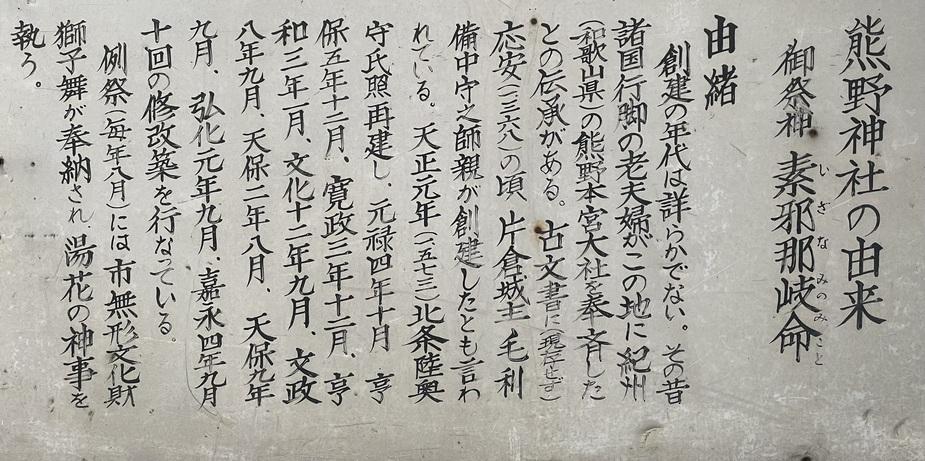 熊野神社の由来
御祭神 素邪那岐命
いざなみのみこと
由緒
創建の年代は詳らかでない。その昔
諸国行脚の老夫婦がこの地に紀州
(和歌山県)の熊野本宮大社を奉斉した
との伝承がある。古文書に(現存せず)
応安(一三六八)の頃 片倉城主 毛利
備中守之師親が創建したとも言わ
れている。天正元年(一五七三)北条陸奥
守氏照再建し、元禄四年十月 亨
保五年十二月、寛政三年十二月、亨
和三年一月、文化十二年九月、文政
八年九月、天保二年八月、天保九年
九月、弘化元年九月、嘉永四年九月
十回の修改築を行なっている。
例祭(毎年八月)には市無形文化財
獅子舞が奉納され、湯花の神事を
執う。